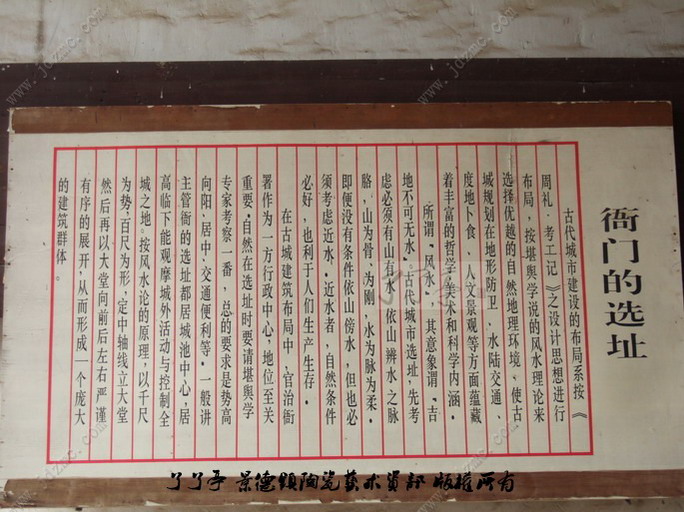 衙门的选址
古代城市建设的布局系按《
周礼·考工记》之设计思想进行
布局，按堪舆学说的风水理论来
选择优越的自然地理环境、使古
城规划在地形防卫，水陆交通、
度地卜食，人文景观等方面蕴藏
着丰富的哲学、美术和科学内涵。
所谓“风水”，其意象谓，吉
地不可无水，古代城市选址，先考
虑必须有山有水，依山辨水之脉
胳，山为骨，为刚，水为脉为柔。
即便没有条件依山傍水，但也必
须考虑近水，近水者，自然条件
必好，也利于人们生产生存。
在古城建筑布局中，官治衙
署作为一方行政中心，地位至关
重要，自然在选址时要请堪舆学
专家考察一番，总的要求是势高
向阳，居中，交通便利等。一般讲
主管衙的选址都居城池中心，居
高临下能观摩城外活动与控制全
城之地。按风水论的原理，以千尺
为势，百尺为形，定中轴线立大堂
然后再以大堂向前后左右严谨
有序的展开，从而形成一个庞大
的建筑群体。
了了亭 景德镇陶瓷艺术资讯 版权所有
www.jdzmc.com